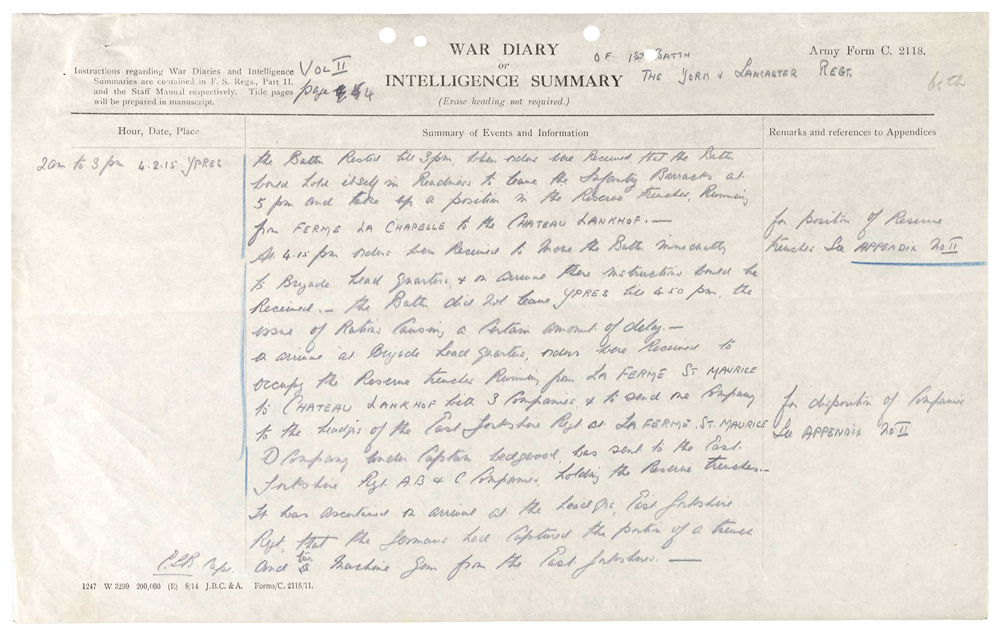 WAR DIARY
or
INTELLIGENCE SUMMARY
(Erase heading not required.)
OF 1ST BATTN
THE YORK & LANCASTER REGT.
Army Form C. 2118.
Instructions regarding War Diaries and Intelligence
Summaries are contained in F. S. Regs., Part II.
and the Staff Manual respectively. Title pages
will be prepared in manuscript.
VOL II
page 4
Hour, Date, Place
Summary of Events and Information
Remarks and references to Appendices
2am to 3 pm 4.2.15 YPRES
the Battn Rested till 3pm, when orders were Received that the Battn
would hold itself in Readiness to leave the Infantry Barracks at
5 pm and take up a position in the Reserve trenches, Running
from FERME LA CHAPELLE to the CHATEAU LANKHOF. —
At 4.15 pm orders were Received to move the Battn immediately
to Brigade Head Quarters, & on arrival there instructions would be
Received. — the Battn did not leave YPRES till 4.50 pm, the
issue of Rations Causing a Certain amount of delay. —
on arrival at Brigade Head Quarters, orders were Received to
occupy the Reserve trenches Running from LA FERME ST MAURICE
to CHATEAU LANKHOF with 3 Companies, & to send one Company
to the Headqrs of the East Yorkshire Regt at LA FERME. ST. MAURICE
D Company under Captain Wedgwood, was sent to the East
Yorkshire Regt. A B & C Companies, holding the Reserve trenches. —
It was ascertained on arrival at the Headqrs, East Yorkshire
Regt, that the Germans had Captured the portion of a trench
and two Machine Guns from the East Yorkshires. —
for position of Reserve
trenches See APPENDIX No II
for disposition of Companies
See APPENDIX No II
1247 W 3299 200,000 (E) 8/14 J.B.C. & A. Forms/C. 2118/11.